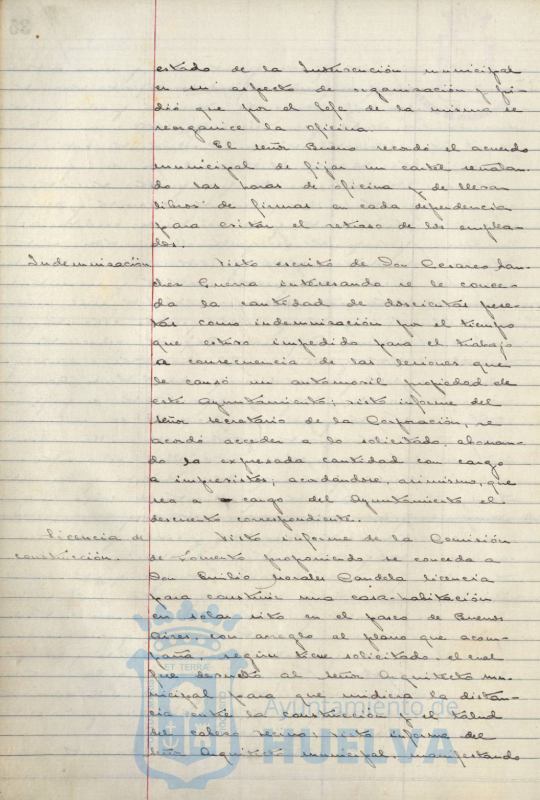 estado de la Intervención municipal
en su aspecto de organización y pi-
dió que por el Jefe de la misma se
reorganice la oficina.
El señor Bueno recordó el acuerdo
municipal de fijar un cartel señalan-
do las horas de oficina y de llevar
libros de firmas en cada dependencia
para evitar el retraso de los emplea-
dos.
Indemnización Visto escrito de Don Cesareo
Guerra interesando se le conce-
da la cantidad de doscientas pese-
tas como indemnización por el tiempo
que estuvo impedido para el trabajo
a consecuencia de las lesiones que
le causó un automovil propiedad de
este Ayuntamiento; visto informe del
señor secretario de la Corporación, se
acordó acceder a lo solicitado, abonan-
do la expresada cantidad con cargo
a imprevistos; acordándose, asimismo, que
sea a cargo del Ayuntamiento el
descuento correspondiente.
Licencia de Visto informe de la Comisión
construcción. de Fomento proponiendo se conceda a
Don Emilio Morales Candela licencia
para construir una casa-habitación
en solar sito en el paseo de Buenos
Aires, con arreglo al plano que acom-
paña, según tiene solicitado, el cual
fue devuelto al señor Arquitecto mu-
nicipal para que midiera la distan-
cia entre la construcción y el talud
del cabezo vecino; visto informe del
señor Arquitecto municipal manifestando
ET TERRÆ
Ayuntamiento de
HUELVA